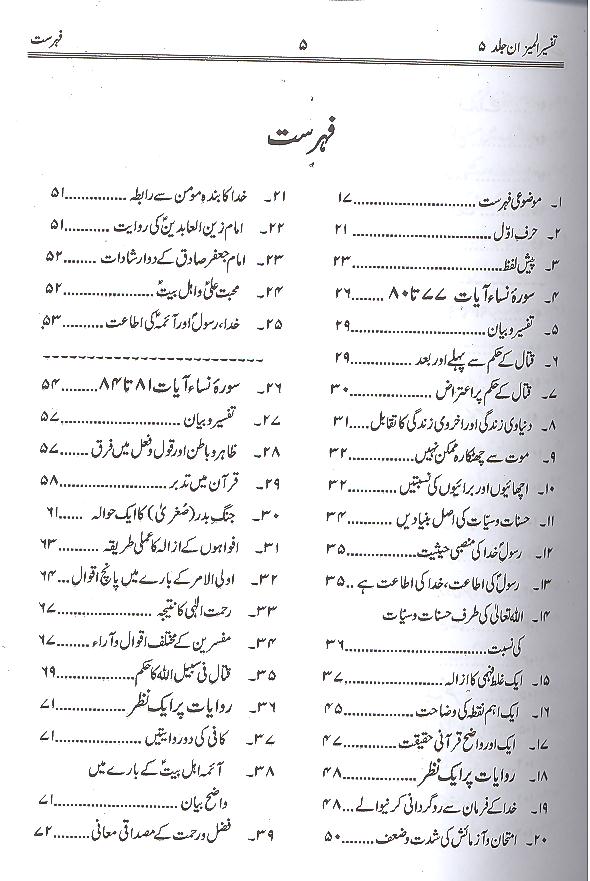 تفسیر المیزان جلد ۵
۵
فہرست
فہرست
۱۔ موضوعی فہرست ........................... ۱۷
۲۔ حرف اوّل ............................... ۲۱
۳۔ پیش لفظ ............................... ۲۳
۴۔ سورۂ نساء آیات ۷۷ تا ۸۰ ........ ۲۶
۵۔ تفسیر و بیان ............................ ۲۹
۶۔ قتال کے حکم سے پہلے اور بعد ............. ۲۹
۷۔ قتال کے حکم پر اعتراض .................. ۳۰
۸۔ دنیاوی زندگی اور اخروی زندگی کا تقابل ..... ۳۱
۹۔ موت سے چھٹکارہ ممکن نہیں ............... ۳۲
۱۰۔ اچھائیوں اور برائیوں کی نسبتیں ............. ۳۲
۱۱۔ حسنات و سیّات کی اصل بنیادیں ........... ۳۴
۱۲۔ رسولِ خدا کی منصبی حیثیت ............... ۳۵
۱۳۔ رسولؐ کی اطاعت، خدا کی اطاعت ہے .. ۳۵
۱۴۔ اللہ تعالٰی کی طرف حسنات و سیّات
کی نسبت ............................... ۳۶
۱۵۔ ایک غلط فہمی کا ازالہ .................... ۳۷
۱۶۔ ایک اہم نقطہ کی وضاحت ................ ۴۵
۱۷۔ ایک اور واضح قرآنی حقیقت ............. ۴۷
۱۸۔ روایات پر ایک نظر ..................... ۴۸
۱۹۔ خدا کے فرمان سے روگردانی کرنیوالے ... ۴۸
۲۰۔ امتحان و آزمائش کی شدت و ضعف ........ ۵۰
۲۱۔ خدا کا بندہ مومن سے رابطہ .............. ۵۱
۲۲۔ امام زین العابدینؑ کی روایت ........... ۵۱
۲۳۔ امام جعفر صادق کے دو ارشادات ........ ۵۲
۲۴۔ محبت علیؑ و اہل بیتؑ .................... ۵۲
۲۵۔ خدا، رسولؐ اور آئمہؑ کی اطاعت ......... ۵۳
۲۶۔ سورہ نساء آیات ۸۱ تا ۸۴ ........ ۵۴
۲۷۔ تفسیر و بیان .......................... ۵۷
۲۸۔ ظاہر و باطن اور قول و فعل میں فرق ....... ۵۷
۲۹۔ قرآن میں تدبر ........................ ۵۸
۳۰۔ جنگِ بدر (صُغریٰ) کا ایک حوالہ ..... ۶۱
۳۱۔ افواہوں کے ازالہ کا عملی طریقہ .......... ۶۳
۳۲۔ اولی الامر کے بارے میں پانچ اقوال ... ۶۴
۳۳۔ رحمت الٰہی کا نتیجہ ..................... ۶۷
۳۴۔ مفسرین کے مختلف اقوال و آراء ......... ۶۷
۳۵۔ قتال فی سبیل اللہ کا حکم ................. ۶۹
۳۶۔ روایات پر ایک نظر .................... ۷۱
۳۷۔ کافی کی دو روایتیں ..................... ۷۱
۳۸۔ آئمہ اہل بیتؑ کے بارے میں
واضح بیان ........................... ۷۱
۳۹۔ فضل و رحمت کے مصداقی معانی ......... ۷۲